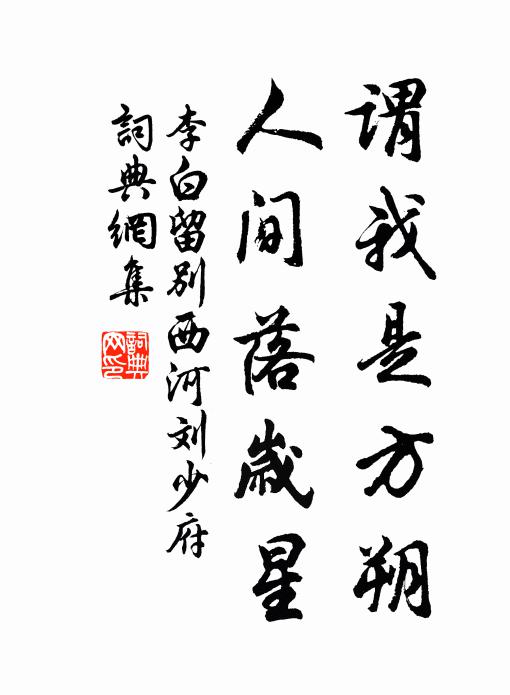 謂我是方朔
人間落歲星
李白留别西河刘少府
詞典網集
詞典
网印